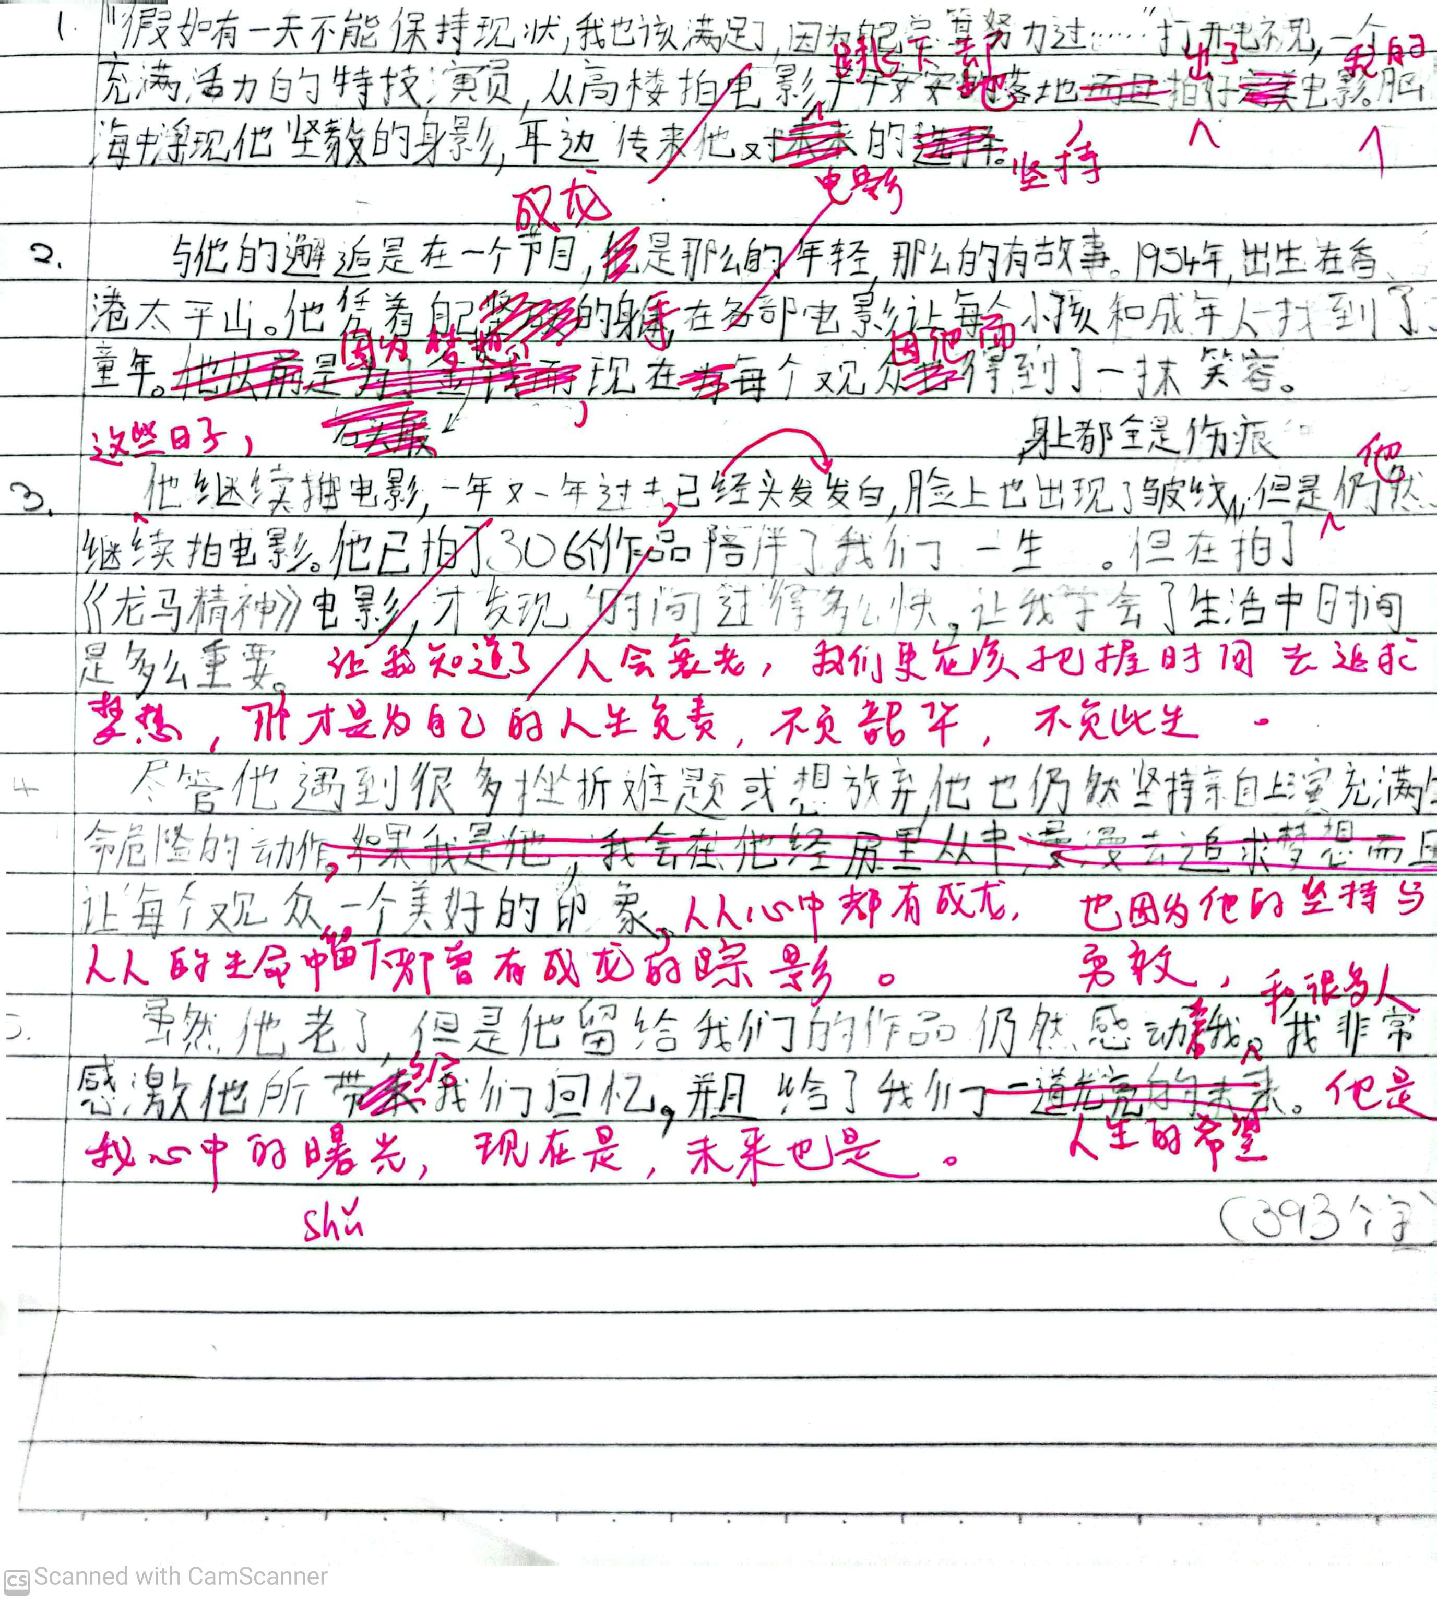 1. "假如有一天不能保持现状,我也该满足了,因为自己总算努力过……"打开电视,一个
跳下却 出了 我的
充满活力的特技演员,从高楼拍电影,平平安安地落地而且拍好电影。脑
海中浮现他坚毅的身影,年边传来他对未来的选择。
电影 坚持
成龙
2. 与他的邂逅是在一个节目,他是那么的年轻,那么的有故事。1954年,出生在香
港太平山。他凭着自己的身手,在各部电影让每个小孩和成年人找到了
因为梦想 因他而
童年。他以前是为了金钱而现在为每个观众得到了一抹笑容。
这些日子, 身上都全是伤痕
他
3. 他继续拍电影,一年又一年过去,已经头发发白,脸上也出现了皱纹,但是仍然
继续拍电影。他已拍了306个作品陪伴了我们一生。但在拍了
《龙马精神》电影,才发现时间过得多么快。让我学会了生活中时间
是多么重要。让我知道了人会衰老,我们更应该把握时间去追求
梦想,那才是为自己的人生负责,不负韶华,不负此生。
4 尽管他遇到很多挫折难题或想放弃,他也仍然坚持亲自上演充满生
命危险的动作。如果我是他,我会在他经历里从中漫漫去追求梦想而且
让每个观众一个美好的印象。人人心中都有成龙, 也因为他的坚持与
留下
人人的生命中都曾有成龙的踪影。 勇敢,
和很多人
5. 虽然他老了,但是他留给我们的作品仍然感动着我。我非常
给
感激他所带来我们回忆,并且给了我们一道光亮的未来。他是
人生的希望
我心中的曙光,现在是,未来也是。
shǔ
(393个字
CS Scanned with CamScanner